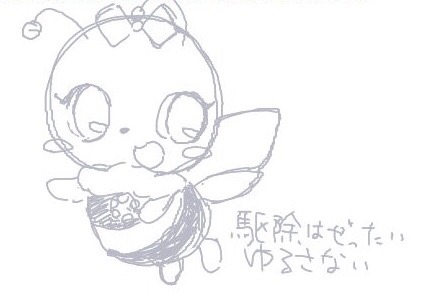 駆除はぜったい
ゆるさない